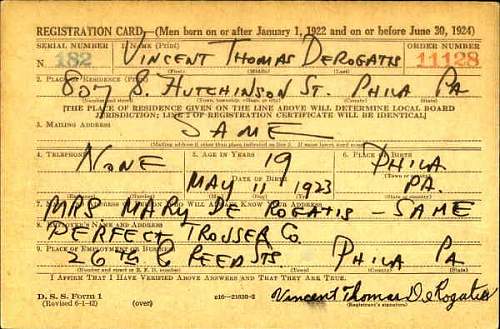 REGISTRATION CARD—(Men born on or after January 1, 1922 and on or before June 30, 1924)
SERIAL NUMBER 1. NAME (Print) ORDER NUMBER
N 182 VINCENT THOMAS DEROGATIS 11128
(First) (Middle) (Last)
2. PLACE OF RESIDENCE (Print)
837 S. HUTCHINSON ST. PHILA PA
(Number and street) (Town, township, village, or city) (County) (State)
[THE PLACE OF RESIDENCE GIVEN ON THE LINE ABOVE WILL DETERMINE LOCAL BOARD
JURISDICTION; LINE 2 OF REGISTRATION CERTIFICATE WILL BE IDENTICAL]
3. MAILING ADDRESS
SAME
(Mailing address if other than place indicated on line 2. If same insert word same)
4. TELEPHONE 5. AGE IN YEARS 6. PLACE OF BIRTH
NONE 19 PHILA
DATE OF BIRTH (Town or county)
MAY 11 1923 PA.
(State or country)
7. NAME AND ADDRESS OF PERSON WHO WILL ALWAYS KNOW YOUR ADDRESS
MRS MARY DE ROGATIS - SAME
8. EMPLOYER'S NAME AND ADDRESS
PERFECT TROUSER CO.
9. PLACE OF EMPLOYMENT OR BUSINESS
26TH & REED STS. PHILA PA
(Number and street or R. F. D. number) (Town) (County) (State)
I AFFIRM THAT I HAVE VERIFIED ABOVE ANSWERS AND THAT THEY ARE TRUE.
D. S. S. Form 1
(Revised 6-1-42) (over) Vincent Thomas DeRogatis
(Registrant's signature)